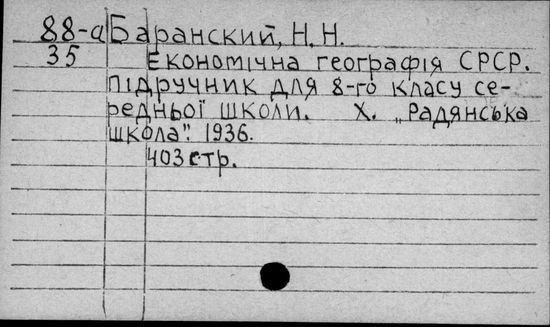 88-а Баранский, Н. Н.
35 Економічна географія СРСР.
підручник для 8-го класу се-
редньої школи. Х. „Радянська
школа". 1936.
403 стр.